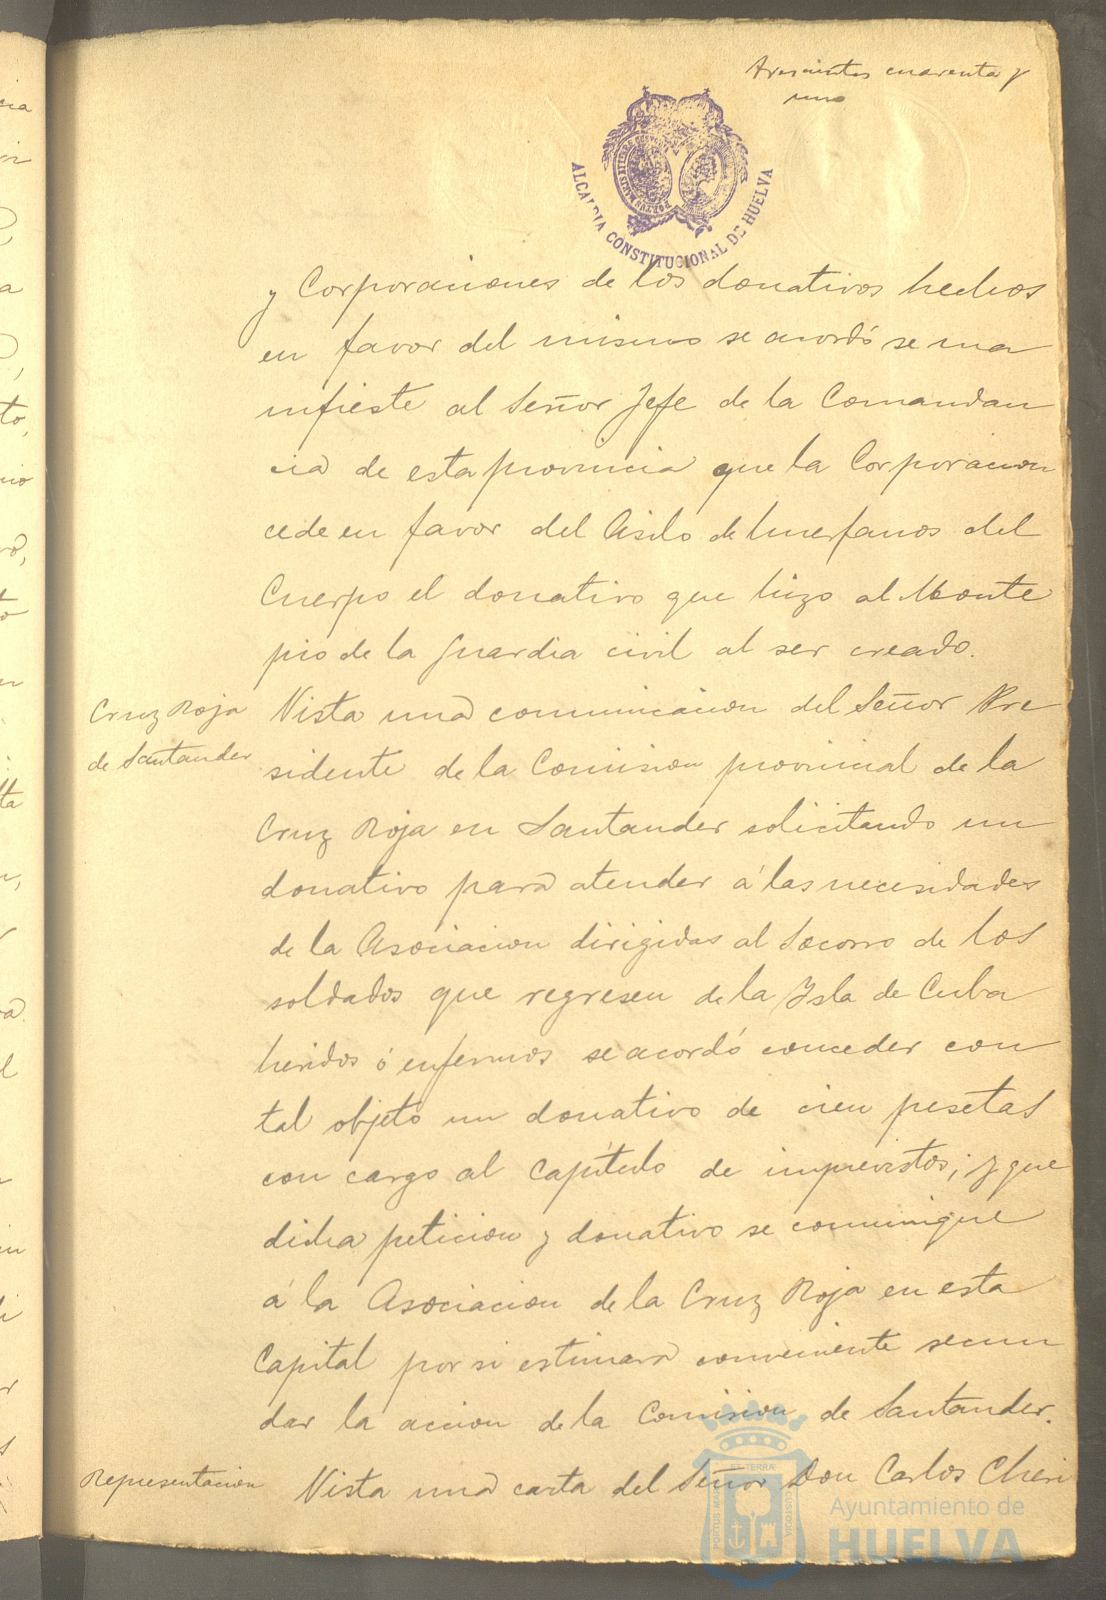 trescientos cuarenta y
uno
ALCALDIA CONSTITUCIONAL DE HUELVA
y Corporaciones de los donativos hechos
en favor del mismo se acordó se ma
nifieste al Señor Jefe de la Comandan
cia de esta provincia que la Corporacion
cede en favor del Asilo de huerfanos del
Cuerpo el donativo que hizo al Monte
pio de la Guardia civil al ser creado.
Cruz Roja
de Santander
Vista una comunicacion del Señor Pre
sidente de la Comision provincial de la
Cruz Roja en Santander solicitando un
donativo para atender á las necesidades
de la Asociacion dirigidas al Socorro de los
soldados que regresen de la Isla de Cuba
heridos ó enfermos se acordó conceder con
tal objeto un donativo de cien pesetas
con cargo al Capítulo de imprevistos; y que
dicha peticion y donativo se comunique
á la Asociacion de la Cruz Roja en esta
Capital por si estimara conveniente secun
dar la accion de la Comision de Santander.
Representacion
Vista una carta del Señor Don Carlos Cheri
Ayuntamiento de
HUELVA